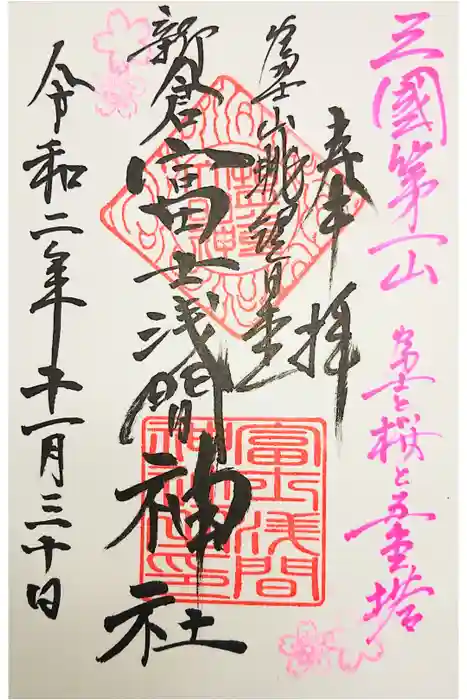 三國第一山
富士と桜と五重塔
奉拝
富士山眺望日本一
新倉富士浅間神社
富士浅間
令和二年十一月三十日